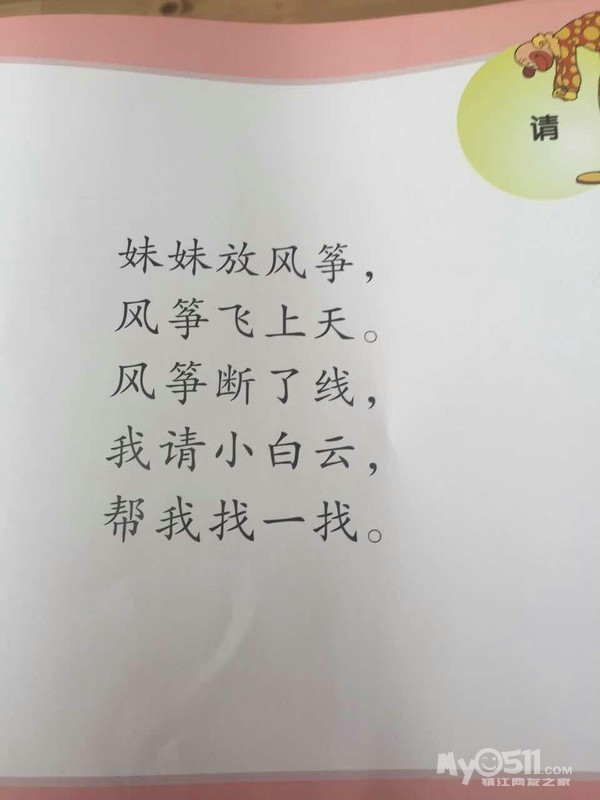 请
妹妹放风筝，
风筝飞上天。
风筝断了线，
我请小白云，
帮我找一找。
My0511.com
镇江网友之家